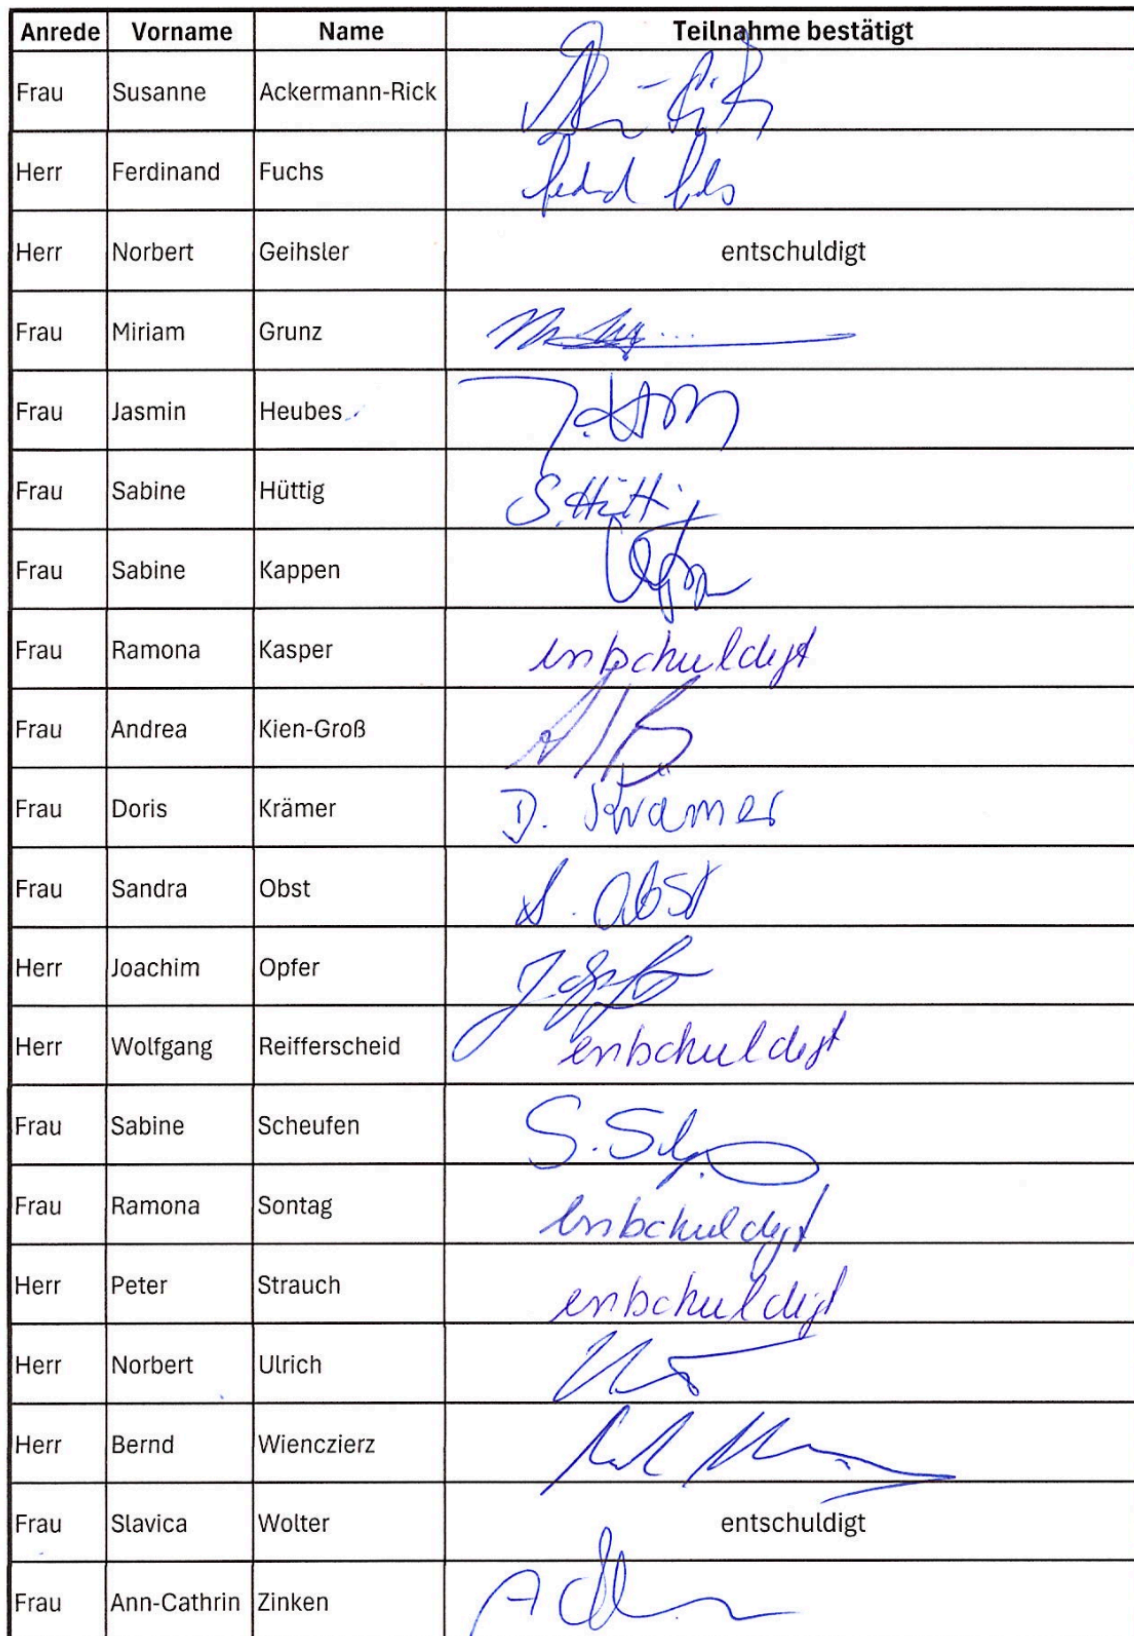 Anrede Vorname Name Teilnahme bestätigt
Frau Susanne Ackermann-Rick
Herr Ferdinand Fuchs
Herr Norbert Geihsler entschuldigt
Frau Miriam Grunz
Frau Jasmin Heubes
Frau Sabine Hüttig S. Hüttig
Frau Sabine Kappen
Frau Ramona Kasper entschuldigt
Frau Andrea Kien-Groß
Frau Doris Krämer D. Krämer
Frau Sandra Obst S. Obst
Herr Joachim Opfer J. Opfer
Herr Wolfgang Reifferscheid entschuldigt
Frau Sabine Scheufen
Frau Ramona Sontag entschuldigt
Herr Peter Strauch entschuldigt
Herr Norbert Ulrich
Herr Bernd Wienczierz
Frau Slavica Wolter entschuldigt
Frau Ann-Cathrin Zinken